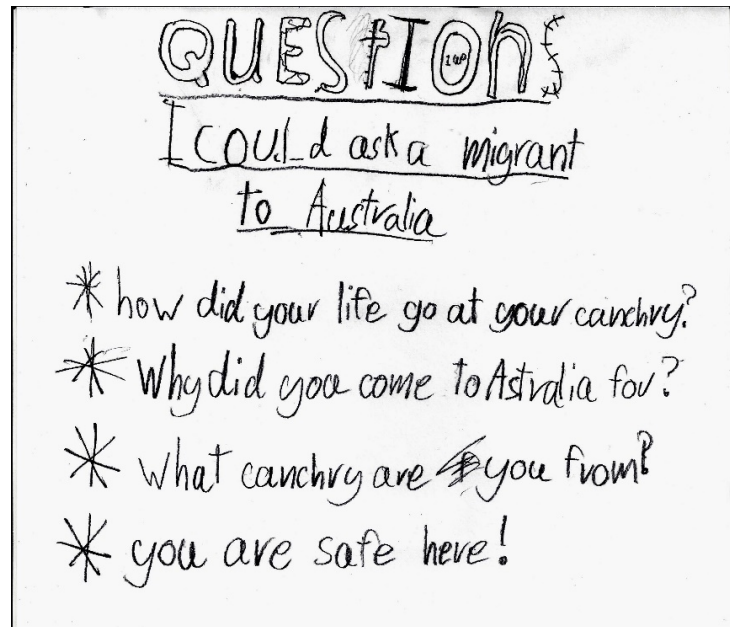 QUEStIOnS
I could ask a migrant
to Australia
* how did your life go at your canchry?
* Why did you come to Astralia for?
* What canchry are you from?
* you are safe here!